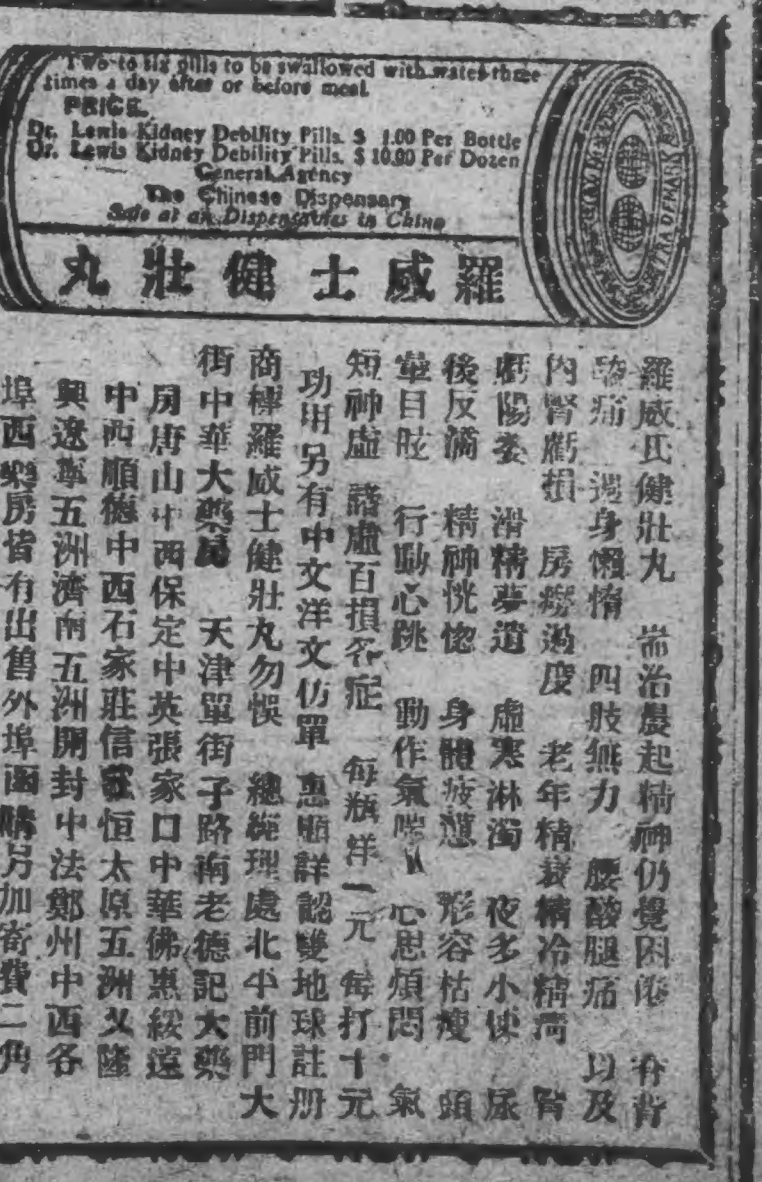 Two to six pills to be swallowed with water three
times a day after or before meal
PRICE.
Dr. Lewis Kidney Debility Pills. $ 1.00 Per Bottle
Dr. Lewis Kidney Debility Pills. $ 10.00 Per Dozen
General Agency
The Chinese Dispensary
Sale at all Dispensaries in China
羅威士健壯丸
羅威氏健壯丸 耑治晨起精神仍覺困倦 脊背
酸痛 週身懶惰 四肢無力 腰酸腿痛 以及
內腎虧損 房癆過度 老年精衰精冷精濇 腎
虧陽委 滑精夢遺 虛寒淋濁 夜多小便 尿
後反滴 精神恍惚 身體疲憊 形容枯瘦 頭
暈目眩 行動心跳 動作氣喘 心思煩悶 氣
短神虛 諸虛百損各症 每瓶洋一元 每打十元
功用另有中文洋文仿單 惠顧詳認雙地球註册
商標羅威士健壯丸勿悞 總經理處北平前門大
街中華大藥房 天津單街子路南老德記大藥
房唐山中西保定中英張家口中華佛惠綏遠
中西順德中西石家莊信 恒太原五洲义隆
興遼寧五洲濟南五洲開封中法鄭州中西各
埠西藥房皆有出售外埠函購另加寄費二角